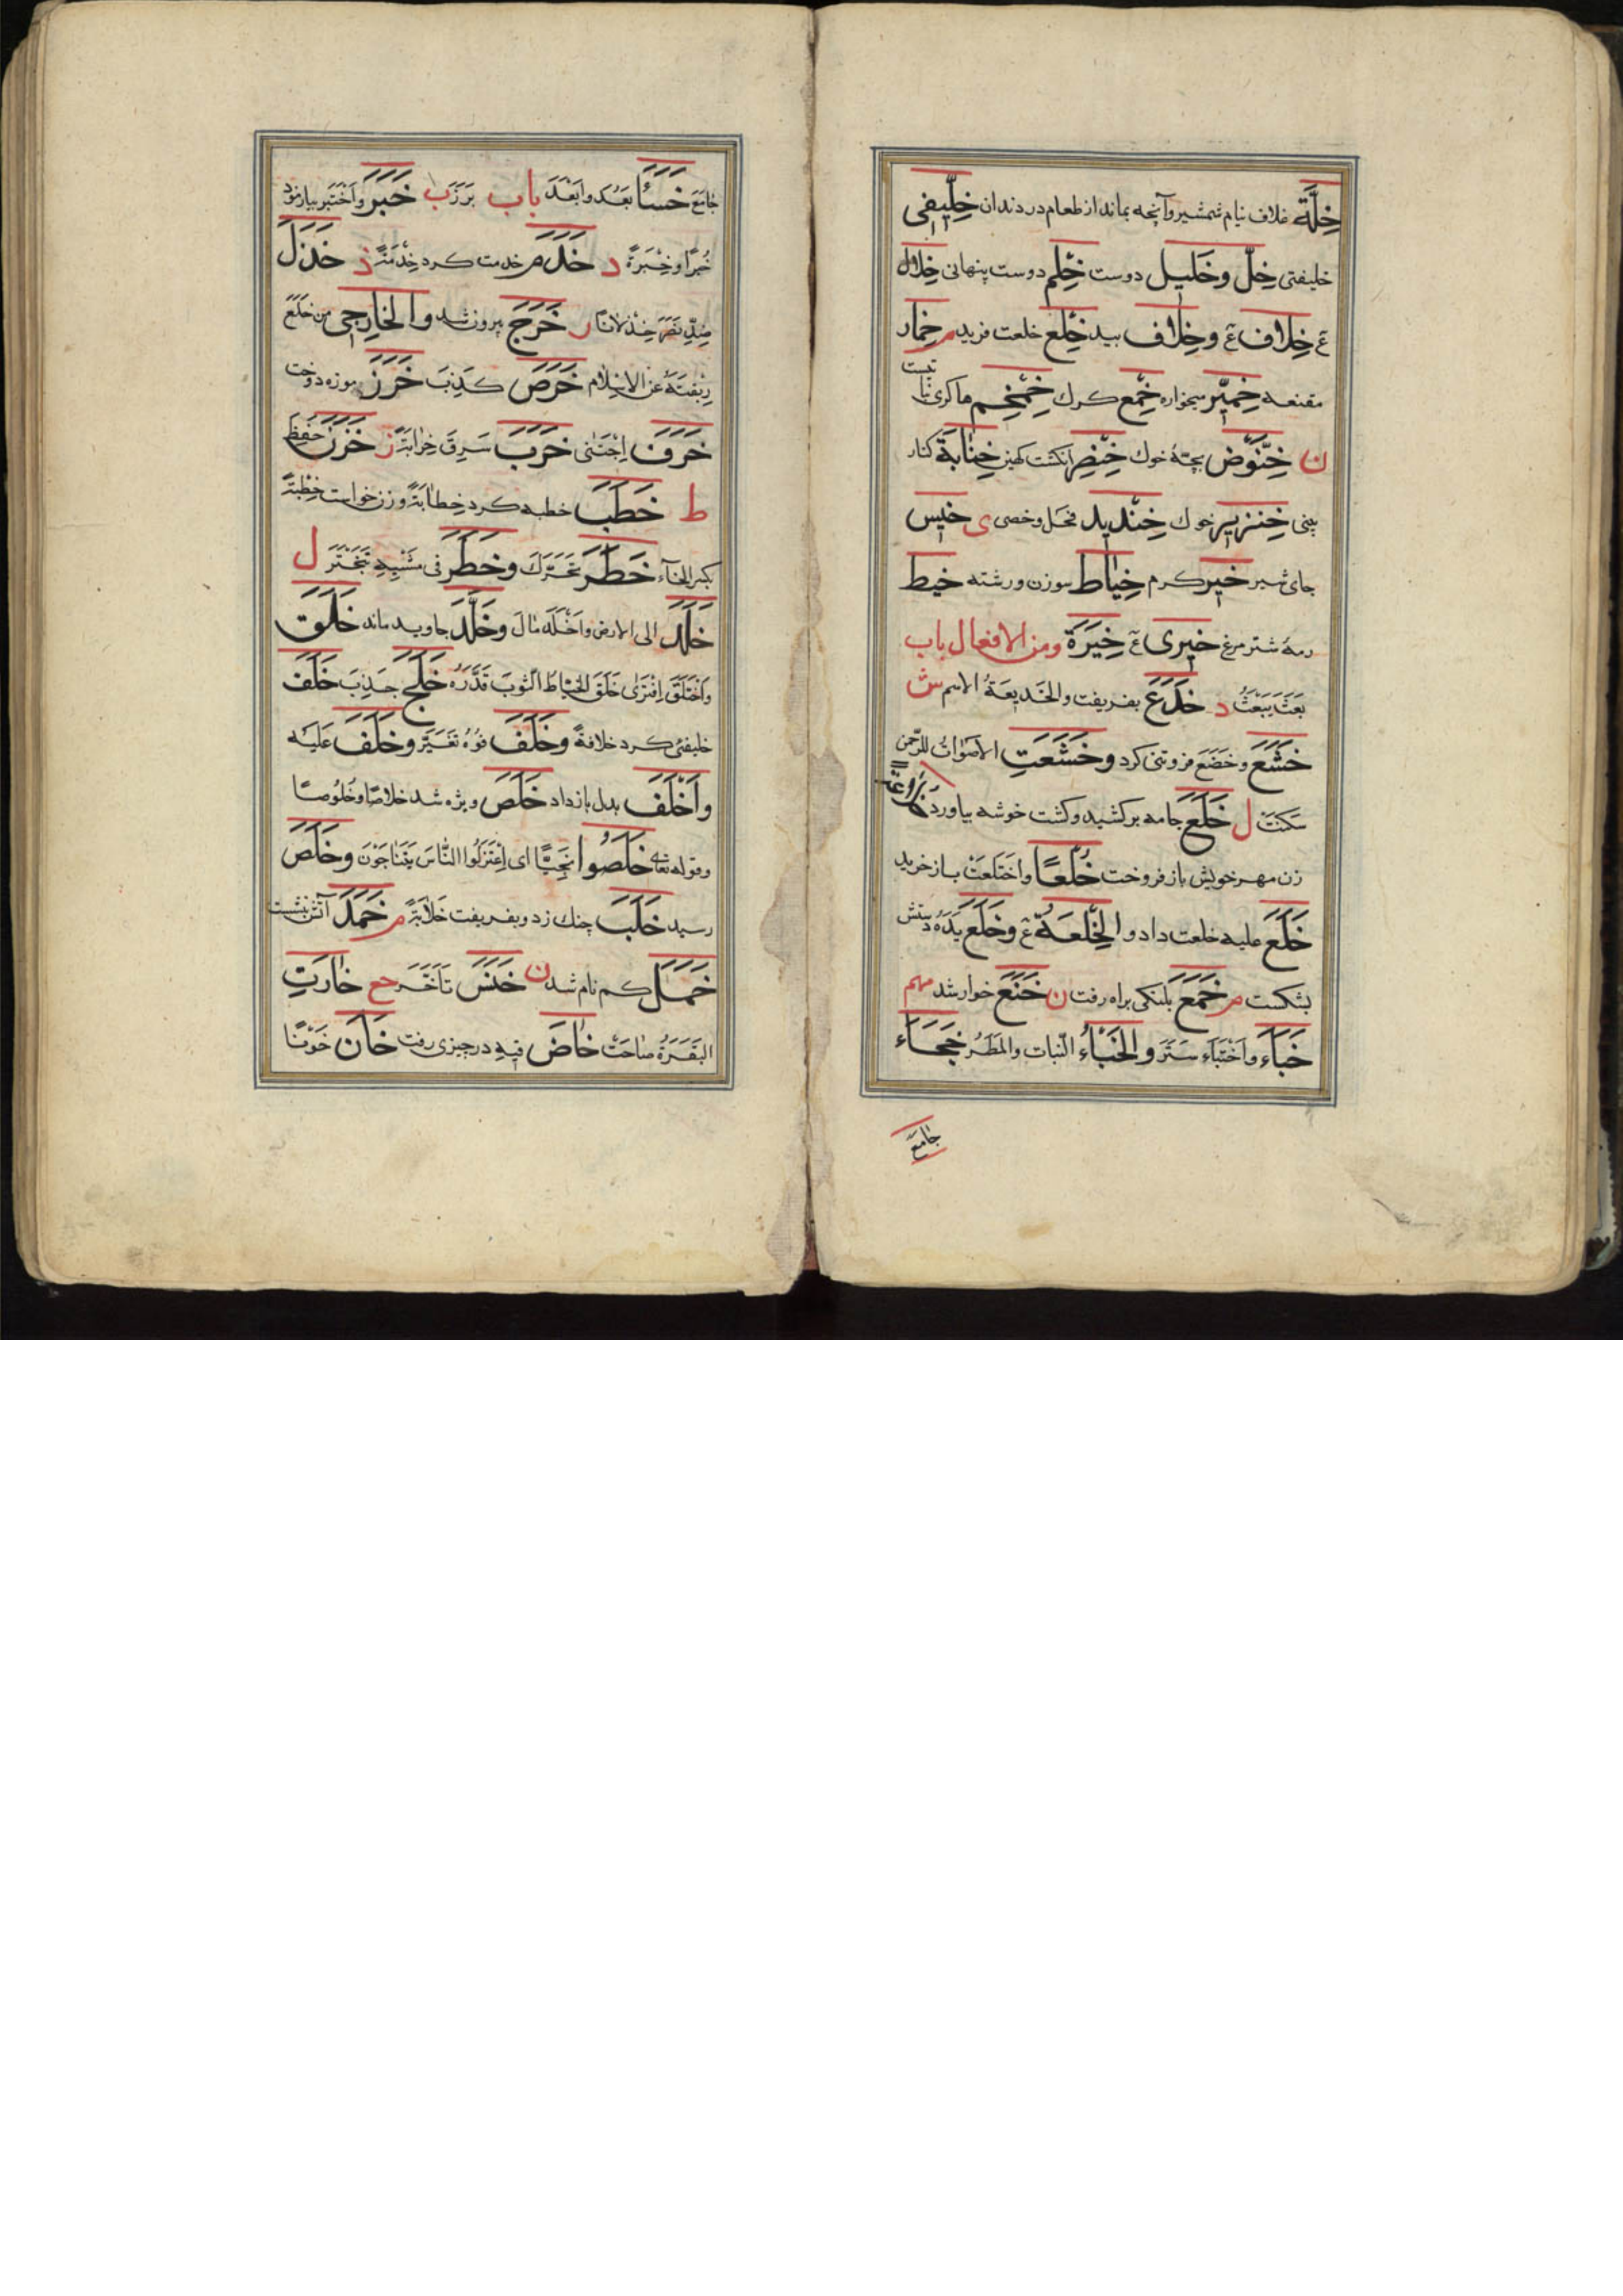 خِلَّة غلاف نیام شمشیر وآنچه بماند از طعام در دندان خِلِّیفی
خلیفتی خِلّ وخَلیل دوست خِلْم دوست پنهانی خِلال
عَ خِلاف عَ وخِلاف بید خِلَع خلعت فرید م خِمار
مقنعه خِمِّیر میخواره خِمْع کرک خِمْخِم
ن خِنَّوْض بچهٔ خوك خِنْصِر انکشت کهین خِنّابَة کنار
بینی خِنزیر خوك خِنْدید فحل وخصی ی خیس
جای شیر خیر کرم خِیاط سوزن ورشته خیط
رمهٔ شترمرغ خیری عَ خِیَرَة ومن الافعال باب
بَعَثَ یَبْعَثُ د خَدَعَ بفریفت والخَدیعَةُ الاسم ش
خَشَعَ وخَضَعَ فروتنی کرد وخَشَعَتِ الاَصْواتُ للرّحمن
سَکَنَتْ ل خَلَعَ جامه برکشید وکشت خوشه بیاورد
زن مهر خویش باز فروخت خُلْعًا واختَلَعَتْ باز خرید
خَلَعَ علیه خلعت داد والخِلْعَةُ عَ وخَلَعَ یَدَهُ دستش
بشکست م خَمَعَ بلنکی براه رفت ن خَنَعَ خوار شد مهم
خَبَاَء واَخْتَبَاَء سَتَرَ والخَبْاُء النّبات والمَطَرُ خَجَاَء
جامَعَ
جامَعَ خَسَأَ بَعُدَ واَبْعَدَ باب بَرَزَ ب خَبَرَ واَخْتَبَر بیازمود
خُبْرًا وخِبْرَةً د خَدَمَ خدمت کرد خِدْمَةً ذ خَذَلَ
ضِدّ نَصَرَ خِذْلانًا ر خَرَجَ بیرون شد والخارِجی من خَلَعَ
رِبْقَتَهُ عَنِ الاِسْلام خَرَصَ کَذِبَ خَرَزَ موزه دوخت
خَرَفَ اِجْتَنی خَرَبَ سَرِقَ خِرابَةً ز خَزَنَ حَفِظَ
ط خَطَبَ خطبه کرد خِطابَةً وزن خواست خِطْبَةً
بکسر الخآء خَطَرَ تَحَرَّكَ وخَطَرَ فی مَشْیِهِ تَبَخْتَرَ ل
خَلَدَ الی الارض واَخْلَدَ مالَ وخَلَّدَ جاوید ماند خَلَقَ
واَخْتَلَقَ اِفْتَری خَلَقَ الخَیّاطُ الثّوبَ قَدَّرَهُ خَلَجَ جَذِبَ خَلَفَ
خلیفتی کرد خلافةً وخَلَفَ فُوهُ تَغَیَّرَ وخَلَفَ عَلَیْه
واَخْلَفَ بدل باز داد خَلَصَ ویژه شد خلاصًا وخُلُوصًا
وقوله تعالی خَلَصُوا نَجِیًّا ای اِعْتَزَلُوا النّاسَ یَتَناجَوْنَ وخَلَصَ
رسید خَلَبَ چنك زد وبفریفت خَلابَةً م خَمَدَ آتش نشست
خَمَلَ کم نام شد ن خَنَسَ تَاَخَّرَ حع خارَتِ
البَقَرَةُ صاحَتْ خاضَ فیهِ در چیزی رفت خانَ خَوْنًا